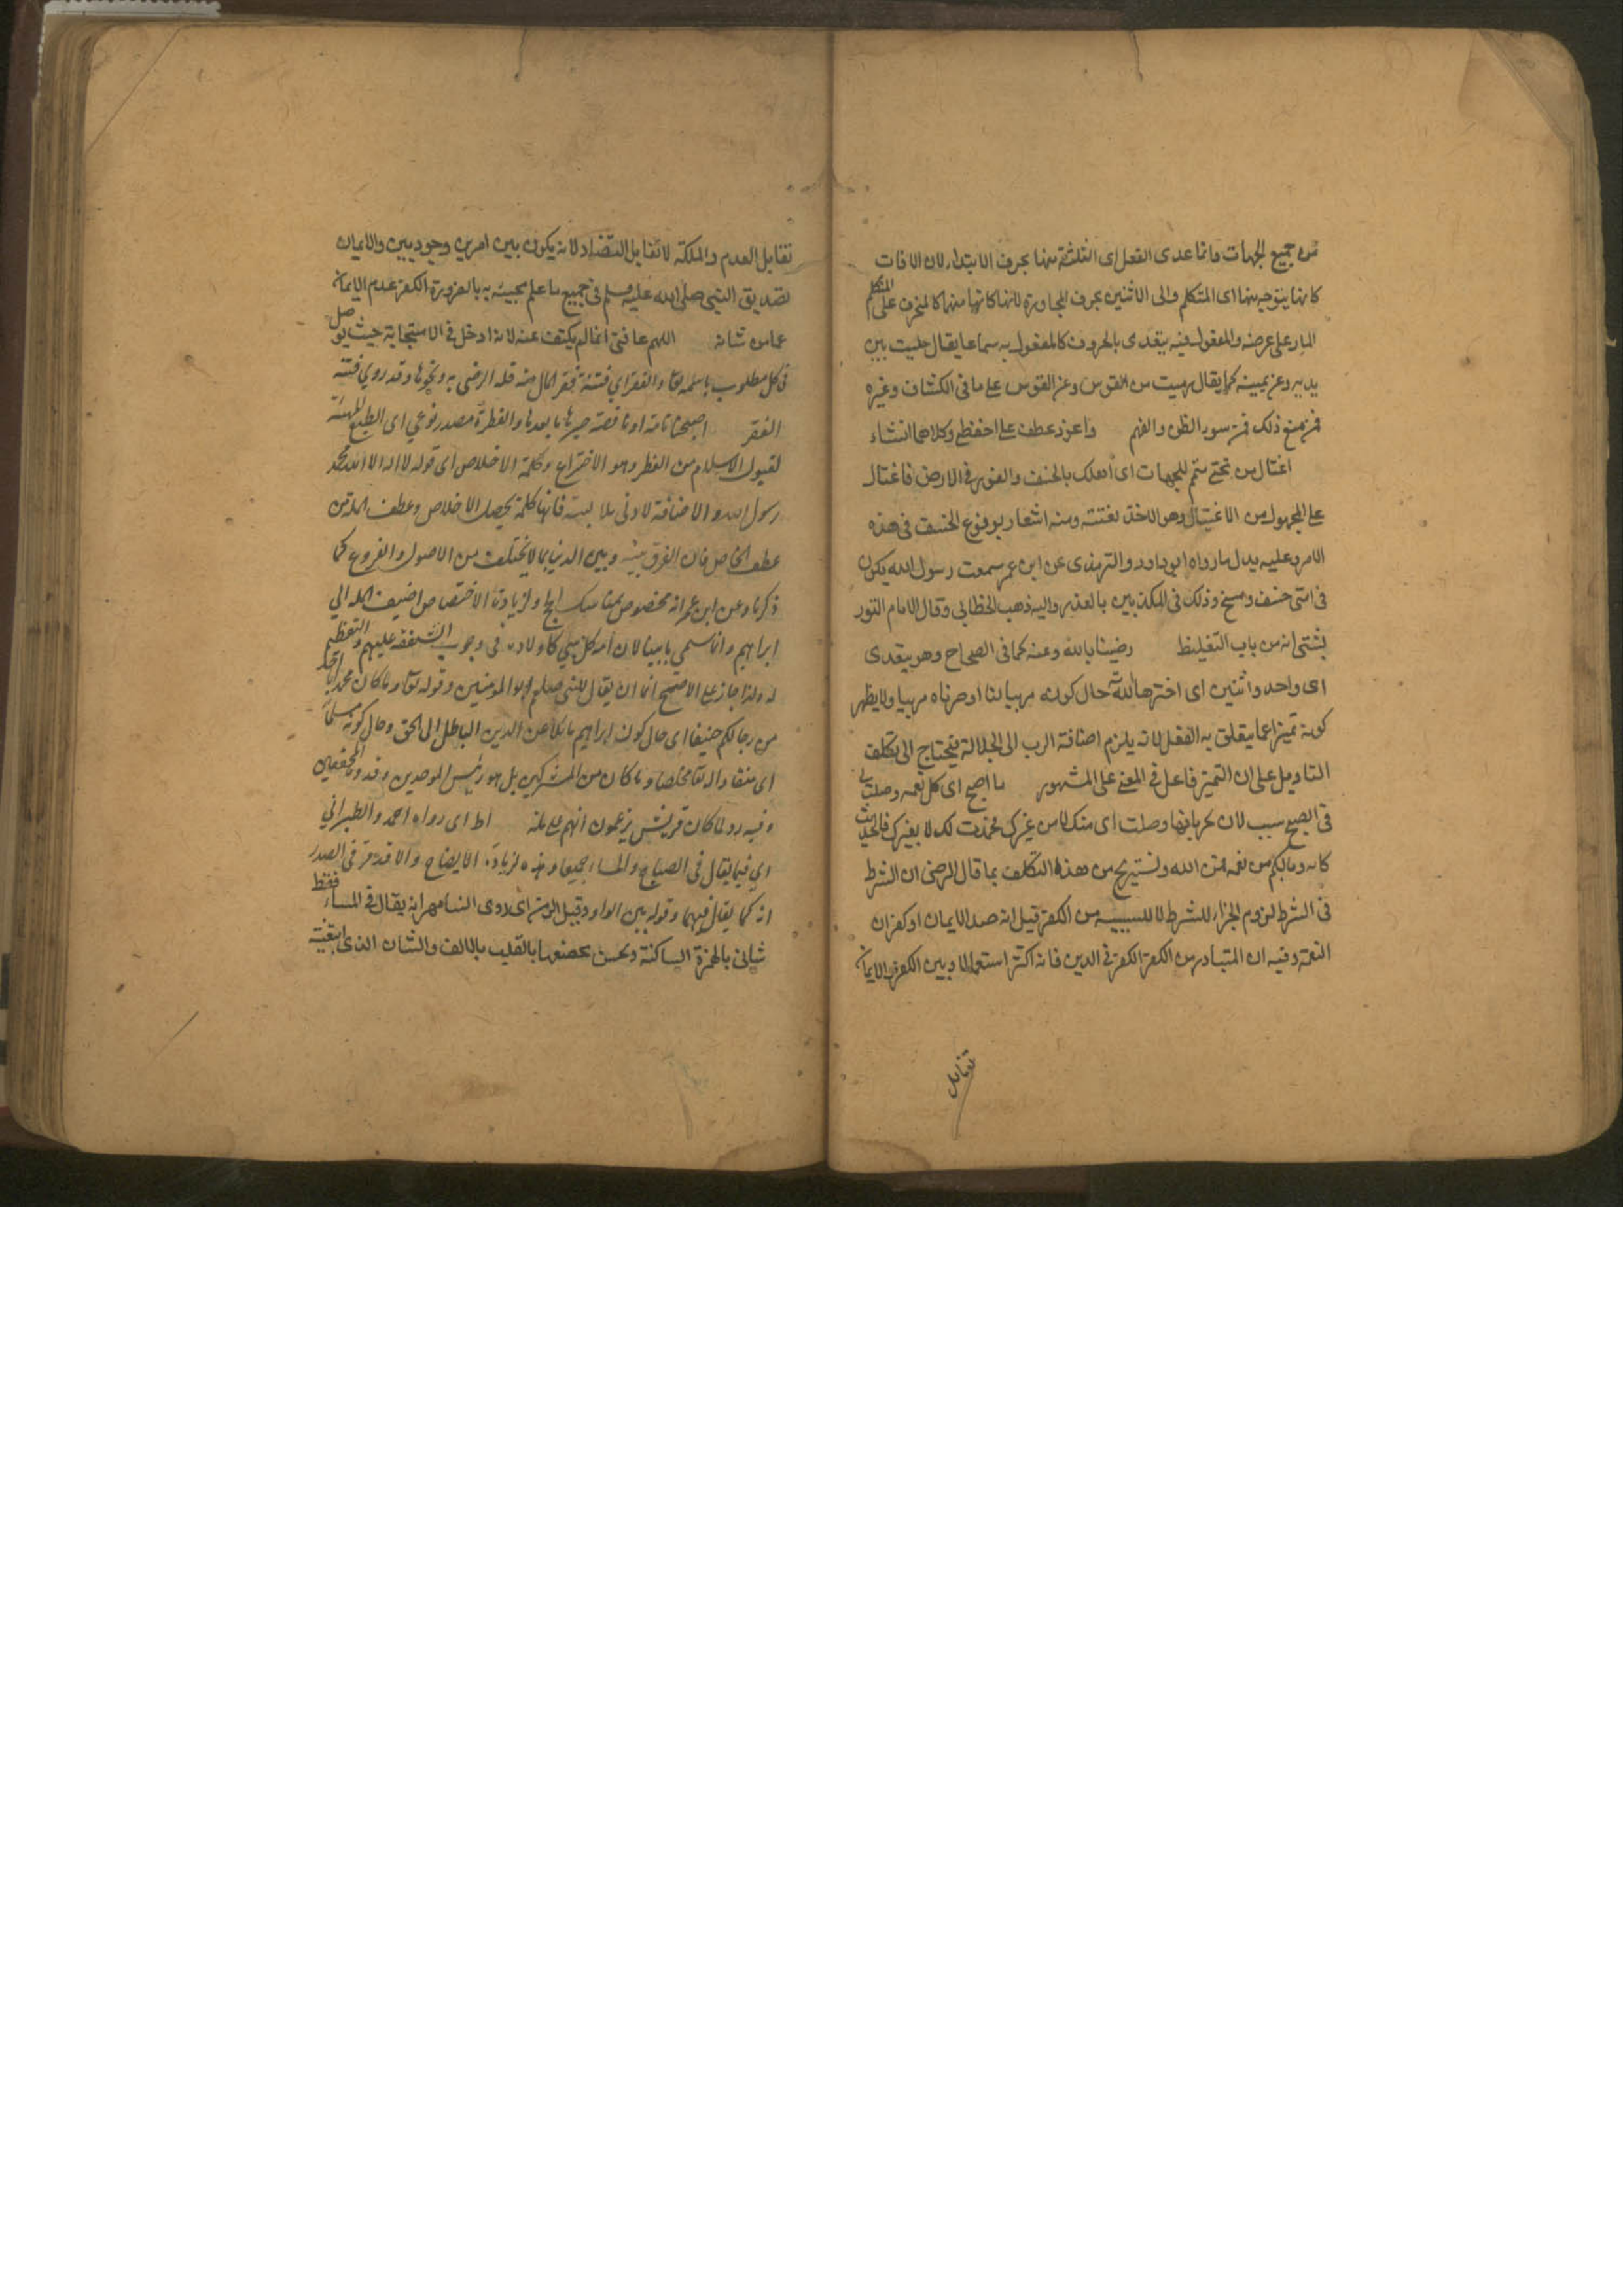 من جميع الجهات وانما عدى الفعل اى الثلثة منها بحرف الابتداء لان الافات
كانها يتوجه منها اى المتكلم والى الاثنين بحرف المجاوزة لانها كانها منها كالمنحرف على المتكلم
المار على عرضه والمفعول فيه يتعدى بالحروف كالمفعول به سماعا يقال جلست بين
يديه وعن يمينه كما يقال رميت من القوس وعن القوس على ما فى الكشاف وغيره
فمن منع ذلك فمن سوء الظن والفهم واعوذ عطف على احفظ وكلاهما انشاء
اغتال من تحتى متمم للجهات اى اهلك بالخسف والغور فى الارض فاغتال
على المجهول من الاغتيال وهو الاخذ بغتة ومنه اشعار بوقوع الخسف فى هذه
الامة وعليه يدل ما رواه ابو داود والترمذى عن ابن عمر سمعت رسول الله يكون
فى امتى خسف ومسخ وذلك فى المكذبين بالقدر واليه ذهب الخطابى وقال الامام التور
بشتى انه من باب التغليظ رضينا بالله وعنه كما فى الصحاح وهو يتعدى
اى واحد واثنين اى اخترنا الله حال كونه مربيا لنا او صرناه مربيا ولا يظهر
كونه تميزا عما يتعلق به الفعل لانه يلزم اضافة الرب الى الجلالة فيحتاج الى تكلف
التاويل على ان التميز فاعل فى المعنى على المشهور ما اصبح اى كل نعمه وصلت لى
فى الصبح سبب لان بانها وصلت اى منك لا من غيرك فحمدت لك لا بغيرك فالحديث
كانه وما بكم من نعمة فمن الله ونستريح من هذا التكلف بما قال الرضى ان الشرط
فى الشرط لزوم الجزاء للشرط لا للسببية من الكفر قيل انه ضد الايمان او كفران
النعمة وفيه ان المتبادر من الكفر الكفر فى الدين فانه اكثر استعمالا وبين الكفر والايمان
تقابل
تقابل العدم والملكة لا تقابل التضاد لانه يكون بين امرين وجوديين والايمان
تصديق النبى صلى الله عليه وسلم فى جميع ما علم مجيئه به بالضرورة الكفر عدم الايمان
عما من شانه اللهم عافنى انما لم يكتف عنه لانه ادخل فى الاستجابة حيث يوصل
فى كل مطلوب باسمه تعا والفقر اى فتنة فقر المال منه قلة الرضى به ونحوها وقد روي فتنة
الفقر اصبحنا تامة او ناقصة خبرها ما بعدها والفطرة مصدر نوعي اى الطبع المهيئة
لقبول الاسلام من الفطر وهو الاختراع وكلمة الاخلاص اى قوله لا اله الا الله محمد
رسول الله والاضافة لادنى ملابسة فانها كلمة يحصل الاخلاص وعطف الملة من
عطف الخاص فان الفرق بينه وبين الدين بما لا يختلف من الاصول والفروع كما
ذكرنا وعن ابن عمر انه مخصوص بمناسك الحج ولزيادة الاختصاص اضيف الملة الى
ابراهيم وانما سمي بابينا لان امة كل نبي كاولاده فى وجوب الشفقة عليهم والتعظيم
له ولذا جاز على الاصح انا ان يقال للنبي صلعم ابو المؤمنين وقوله تعا وما كان محمد ابا احد
من رجالكم حنيفا اى حال كون ابراهيم مائلا عن الدين الباطل الى الحق وحال كونه مسلما
اى منقادا له تعا مخلصا وما كان من المشركين بل هو رئيس الموحدين وقدوة المحققين
وفيه رد لما كان قريش يزعمون انهم على ملته اط اى رواه احمد والطبراني
اي فيما يقال فى الصباح والمساء جميعا وهذه لزيادة الايضاح والا فقد مر فى الصدر
انه كما يقال فيهما وقوله بين الواو وقبيل الرمز اى لاوى النسا مهر انه يقال فى المساء فقط
شانى بالهمزة الساكنة وحسن بعضها بالقلب بالالف والشان الذى ابتغيته